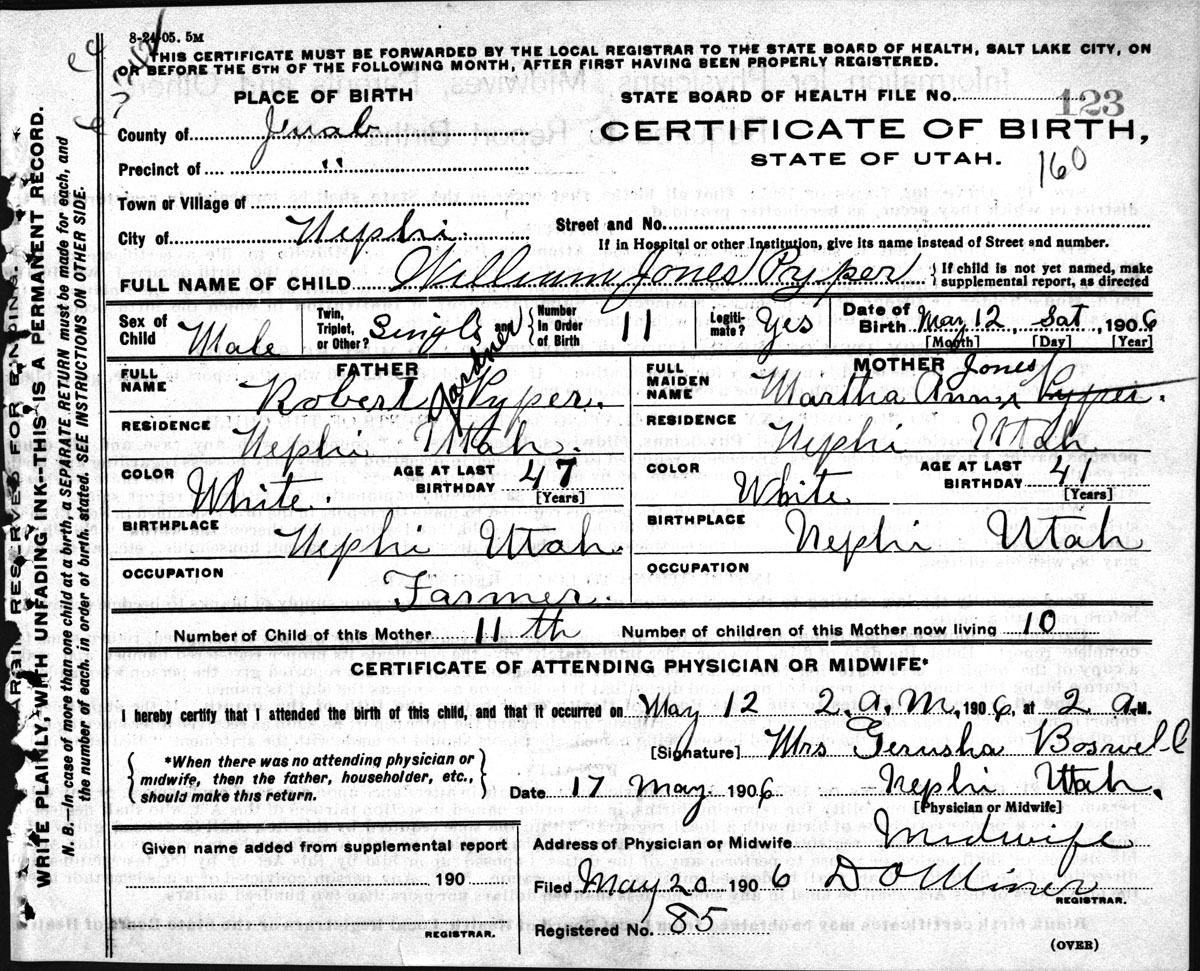 8-24-05. 5M
THIS CERTIFICATE MUST BE FORWARDED BY THE LOCAL REGISTRAR TO THE STATE BOARD OF HEALTH, SALT LAKE CITY, ON
OR BEFORE THE 5TH OF THE FOLLOWING MONTH, AFTER FIRST HAVING BEEN PROPERLY REGISTERED.
PLACE OF BIRTH
STATE BOARD OF HEALTH FILE No. 123
County of Juab
CERTIFICATE OF BIRTH,
STATE OF UTAH.
160
Precinct of "
Town or Village of
City of Nephi.
Street and No.
If in Hospital or other Institution, give its name instead of Street and number.
FULL NAME OF CHILD William Jones Pyper { If child is not yet named, make
supplemental report, as directed
Sex of Child Male
Twin, Triplet, or Other? Single and { Number In Order of Birth 11
Legiti-mate? Yes
Date of Birth May 12, Sat, 1906
[Month] [Day] [Year]
FATHER
FULL NAME Robert Gardner Pyper.
RESIDENCE Nephi Utah.
COLOR White
AGE AT LAST BIRTHDAY 47
[Years]
BIRTHPLACE Nephi Utah
OCCUPATION Farmer.
MOTHER
FULL MAIDEN NAME Martha Anna Jones Pyper.
RESIDENCE Nephi Utah
COLOR White
AGE AT LAST BIRTHDAY 41
[Years]
BIRTHPLACE Nephi Utah
OCCUPATION
Number of Child of this Mother 11th Number of children of this Mother now living 10
CERTIFICATE OF ATTENDING PHYSICIAN OR MIDWIFE*
I hereby certify that I attended the birth of this child, and that it occurred on May 12 2. a.m., 1906, at 2 A.M.
{ *When there was no attending physician or
midwife, then the father, householder, etc.,
should make this return. }
[Signature] Mrs Gerusha Boswell
Date 17 May 1906 Nephi Utah.
[Physician or Midwife]
Given name added from supplemental report
190
REGISTRAR.
Address of Physician or Midwife Midwife
Filed May 20 1906 D O Miner
REGISTRAR.
Registered No. 85
(OVER)
MARGIN RESERVED FOR BINDING.
WRITE PLAINLY, WITH UNFADING INK—THIS IS A PERMANENT RECORD.
N. B.—In case of more than one child at a birth, a SEPARATE RETURN must be made for each, and
the number of each, in order of birth, stated. SEE INSTRUCTIONS ON OTHER SIDE.